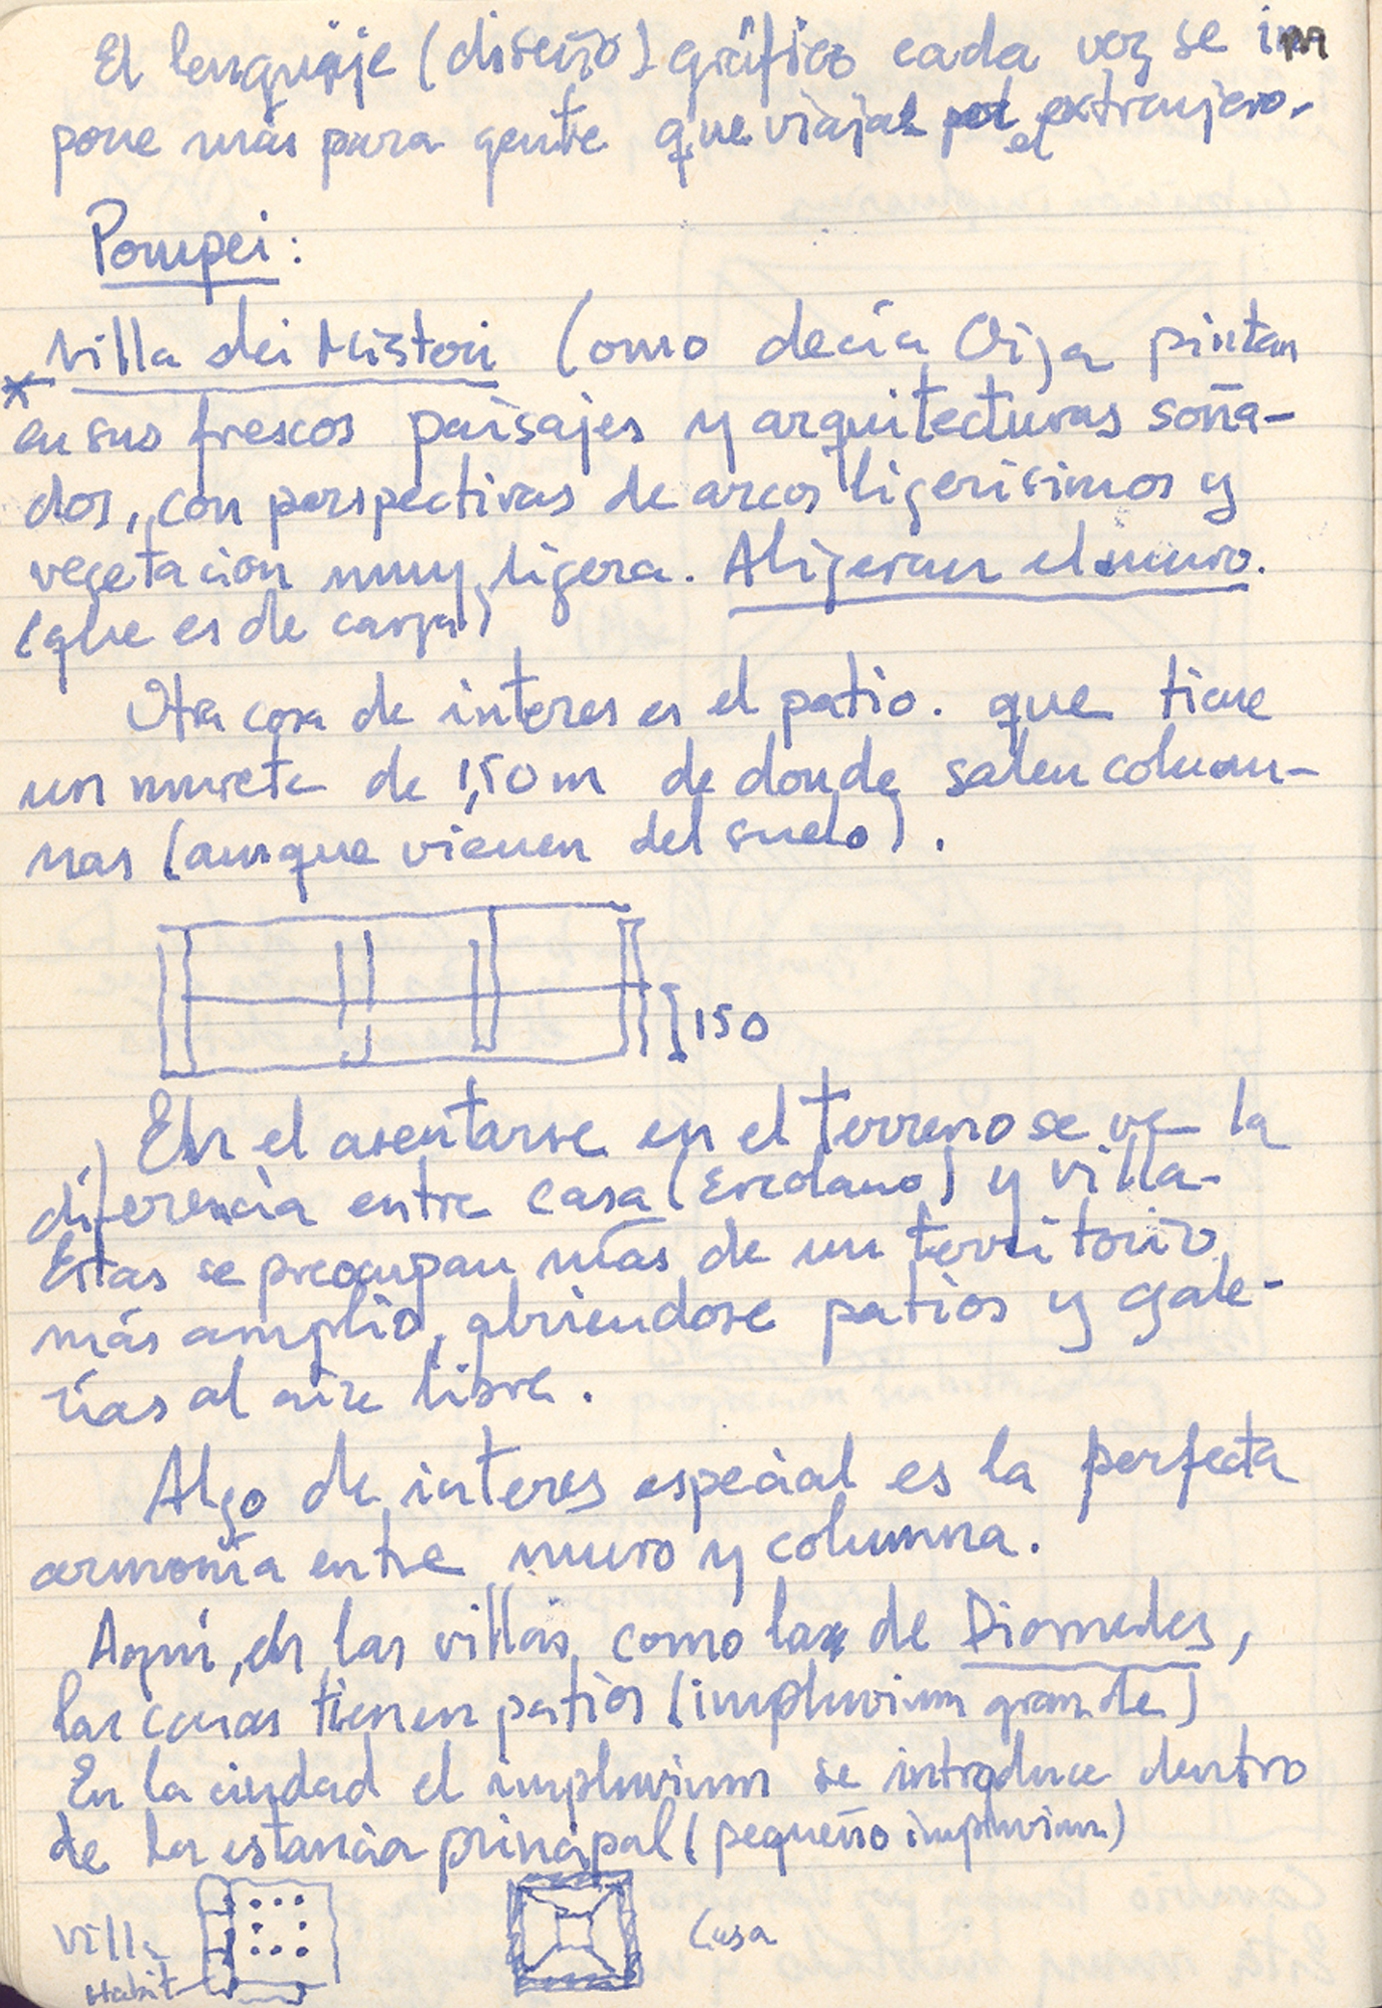 El lenguaje (diseño) gráfico cada vez se im
pone más para gente que viaja por el extranjero.
Pompei:
* Villa dei Misteri Como decía Oiza pintan
en sus frescos paisajes y arquitecturas soña-
dos, con perspectivas de arcos ligerisimos y
vegetacion muy ligera. Aligeran el muro.
(que es de carga)
Otra cosa de interes es el patio. que tiene
un murete de 1,50m de donde salen colum-
nas (aunque vienen del suelo).
150
En el asentarse en el terreno se ve la
diferencia entre casa (Ercolano) y villa.
Estas se preocupan más de un territorio
más amplio, abriendose patios y gale-
rías al aire libre.
Algo de interes especial es la perfecta
armonía entre muro y columna.
Aquí, en las villas como la de Diomedes,
las casas tienen patios (impluvium grande)
En la ciudad el impluvium se introduce dentro
de la estancia principal (pequeño impluvium)
Villa
Habit
Casa